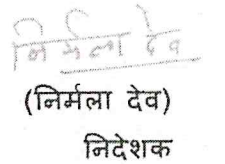 निर्मला देव
(निर्मला देव)
निदेशक